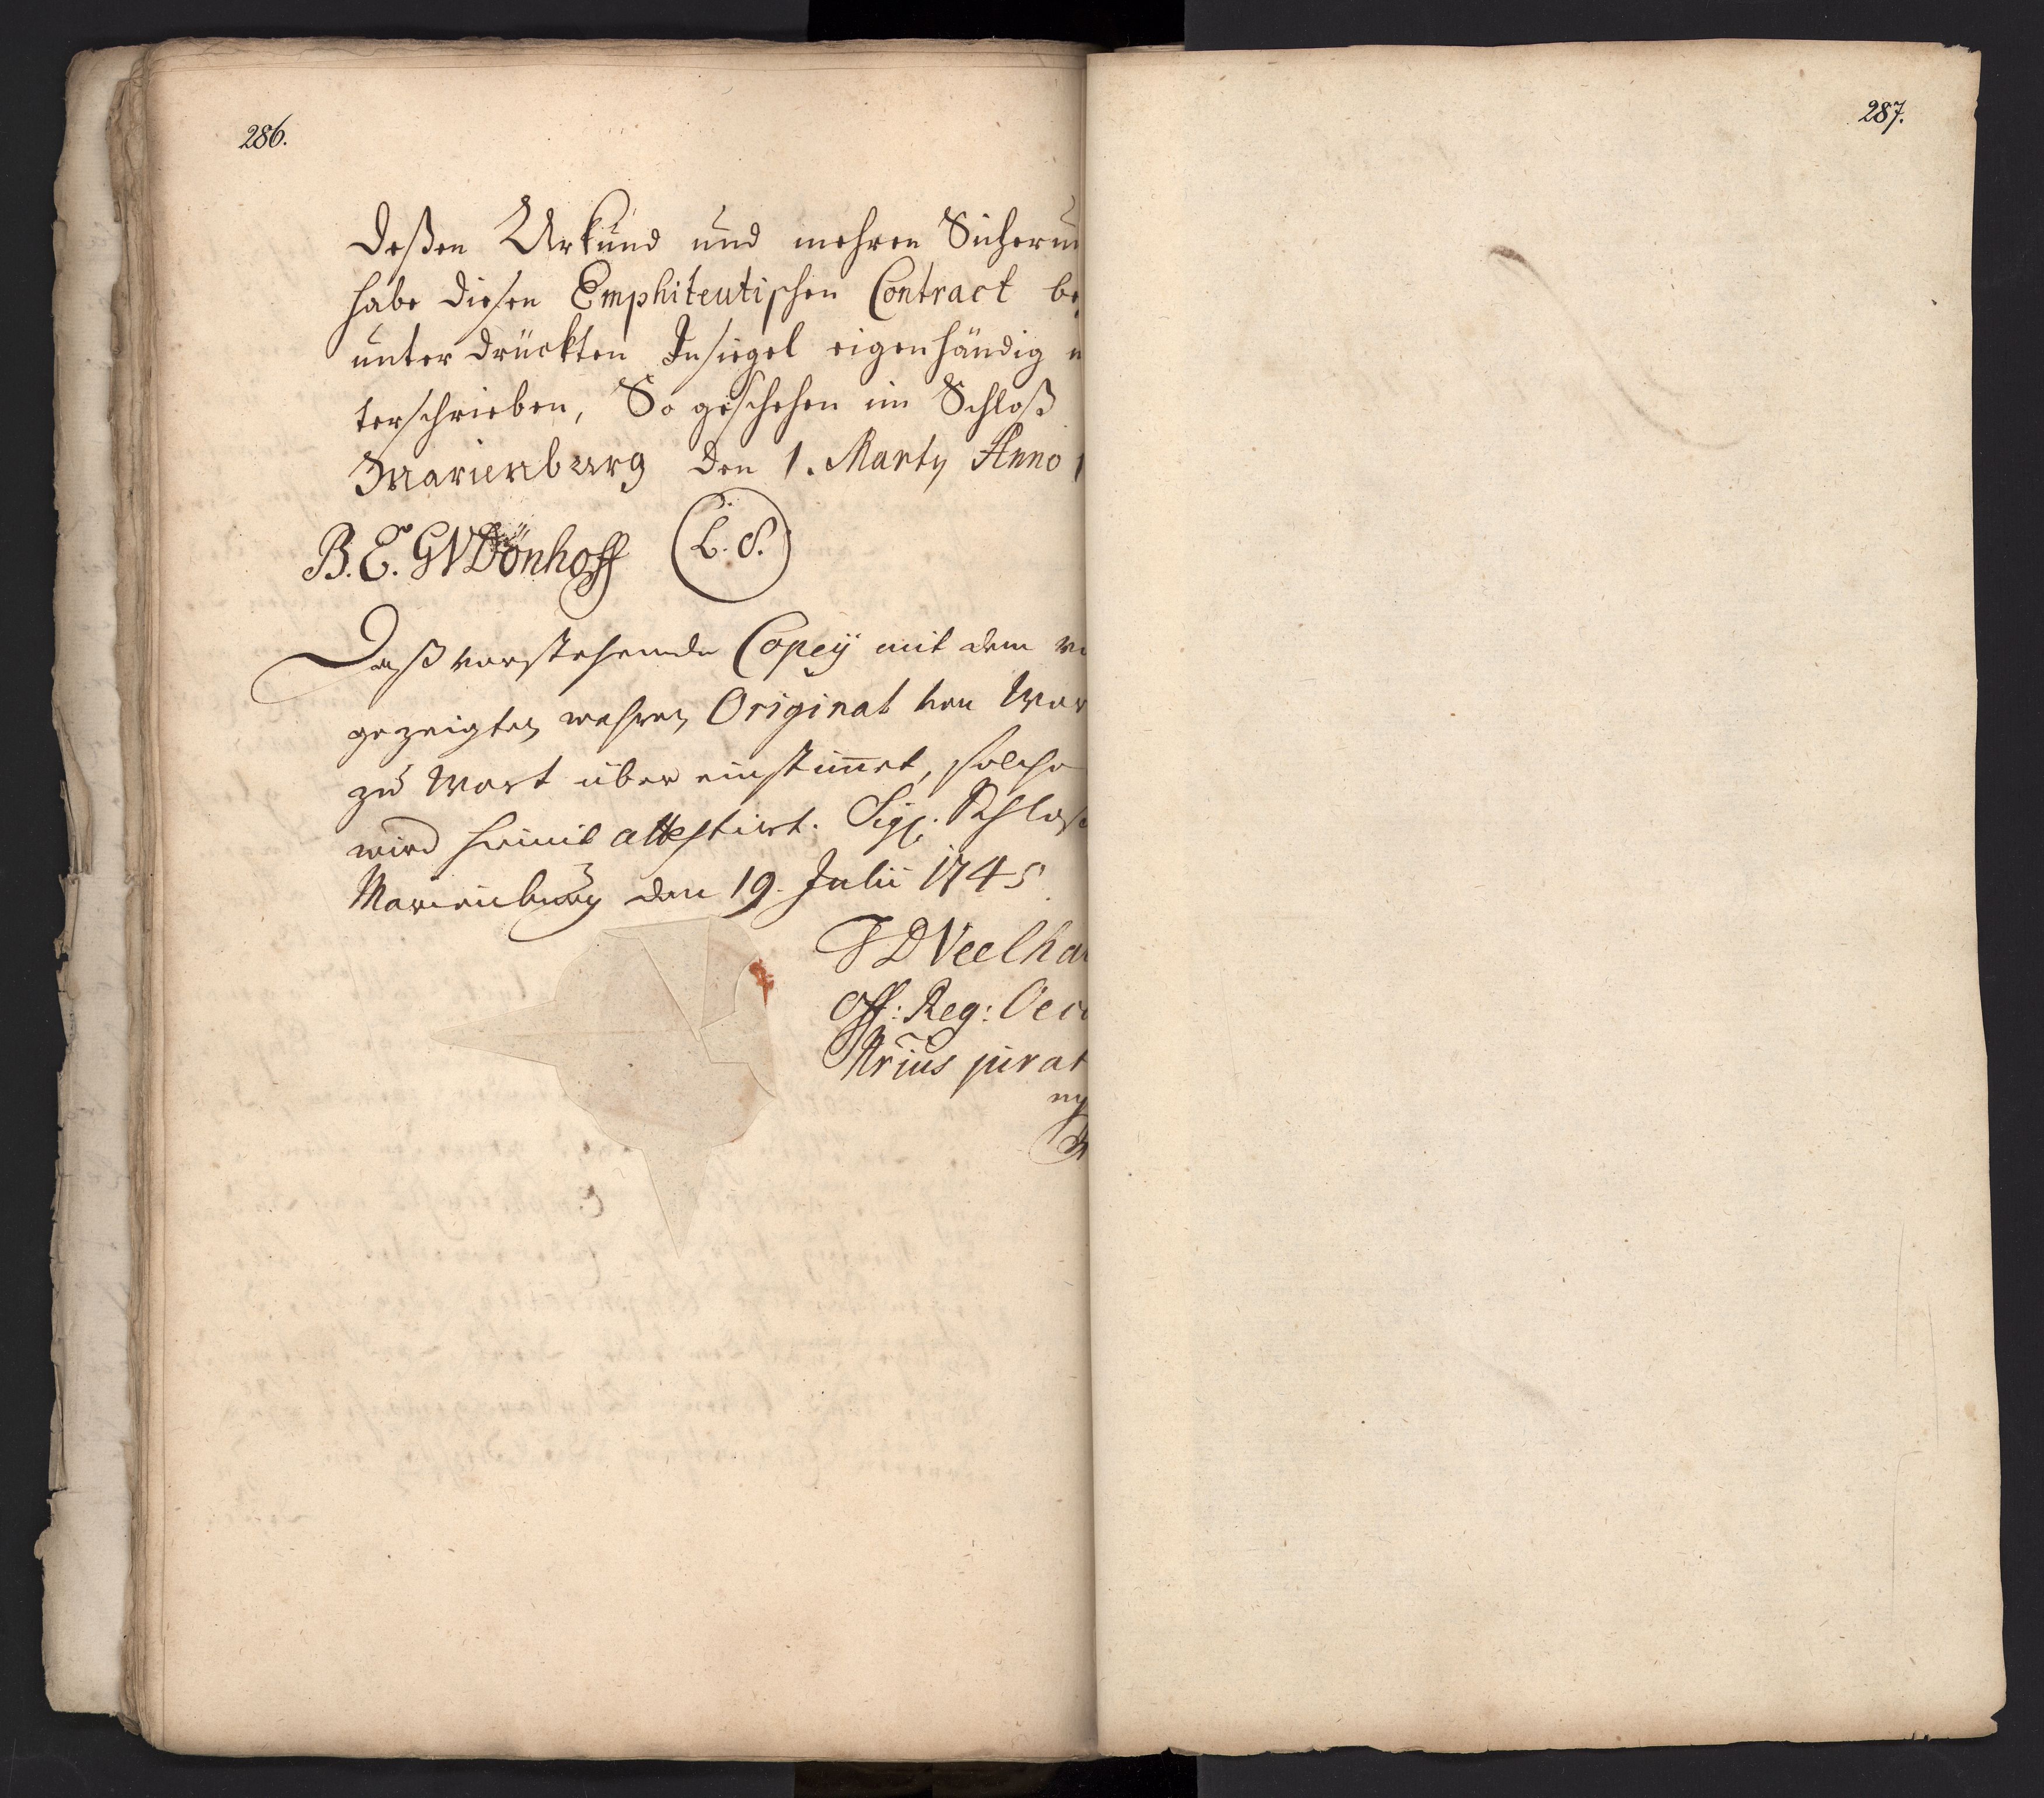 286.
Deßen Urkund und mehren Sicheru
habe diesen Emphiteutischen Contract be
unter drückten Insiegel eigenhändig u
terschrieben, So geschehen im Schloß
Marienburg den 1. Marty Anno 1
B. E. GVDönhoff L. S.
Daß vorstehende Copey mit dem vo
gezeigten wahren Original von Wor
zu Wort über einstimet, solches
wird hiemit attestirt. Schloß
Marienburg den 19. Julii 1745
DVeelha
Off: Reg: Oeco
Nrius jurat
mp
287.